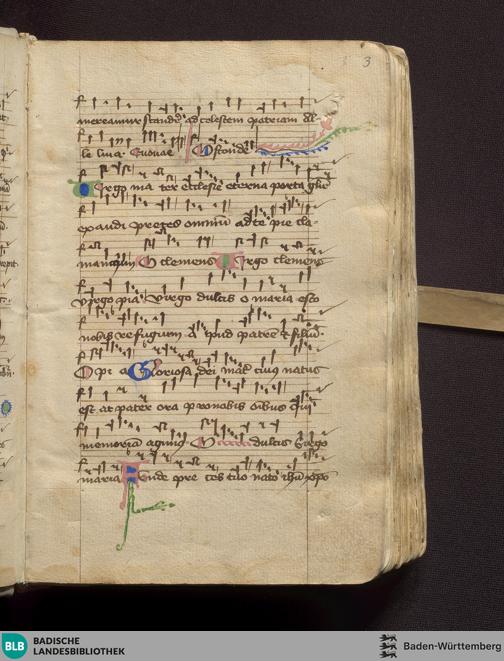 3
mereamur scandere ad celestem patriam Al-
le luia Euouae Ostende
Virgo ma ter ecclesie eterna porta glorie
exaudi preces omnium ad te pie cla-
mancium O clemens Virgo clemens
virgo pia Virgo dulcis o maria esto
nobis refugium A pud patrem et filium
O pi a Gloriosa dei mater cuius natus
est ac pater ora pro nobis omnibus qui
memoriam agimus O dulcis Virgo
maria Funde pre ces tuo nato
BLB
BADISCHE
LANDESBIBLIOTHEK
Baden-Württemberg